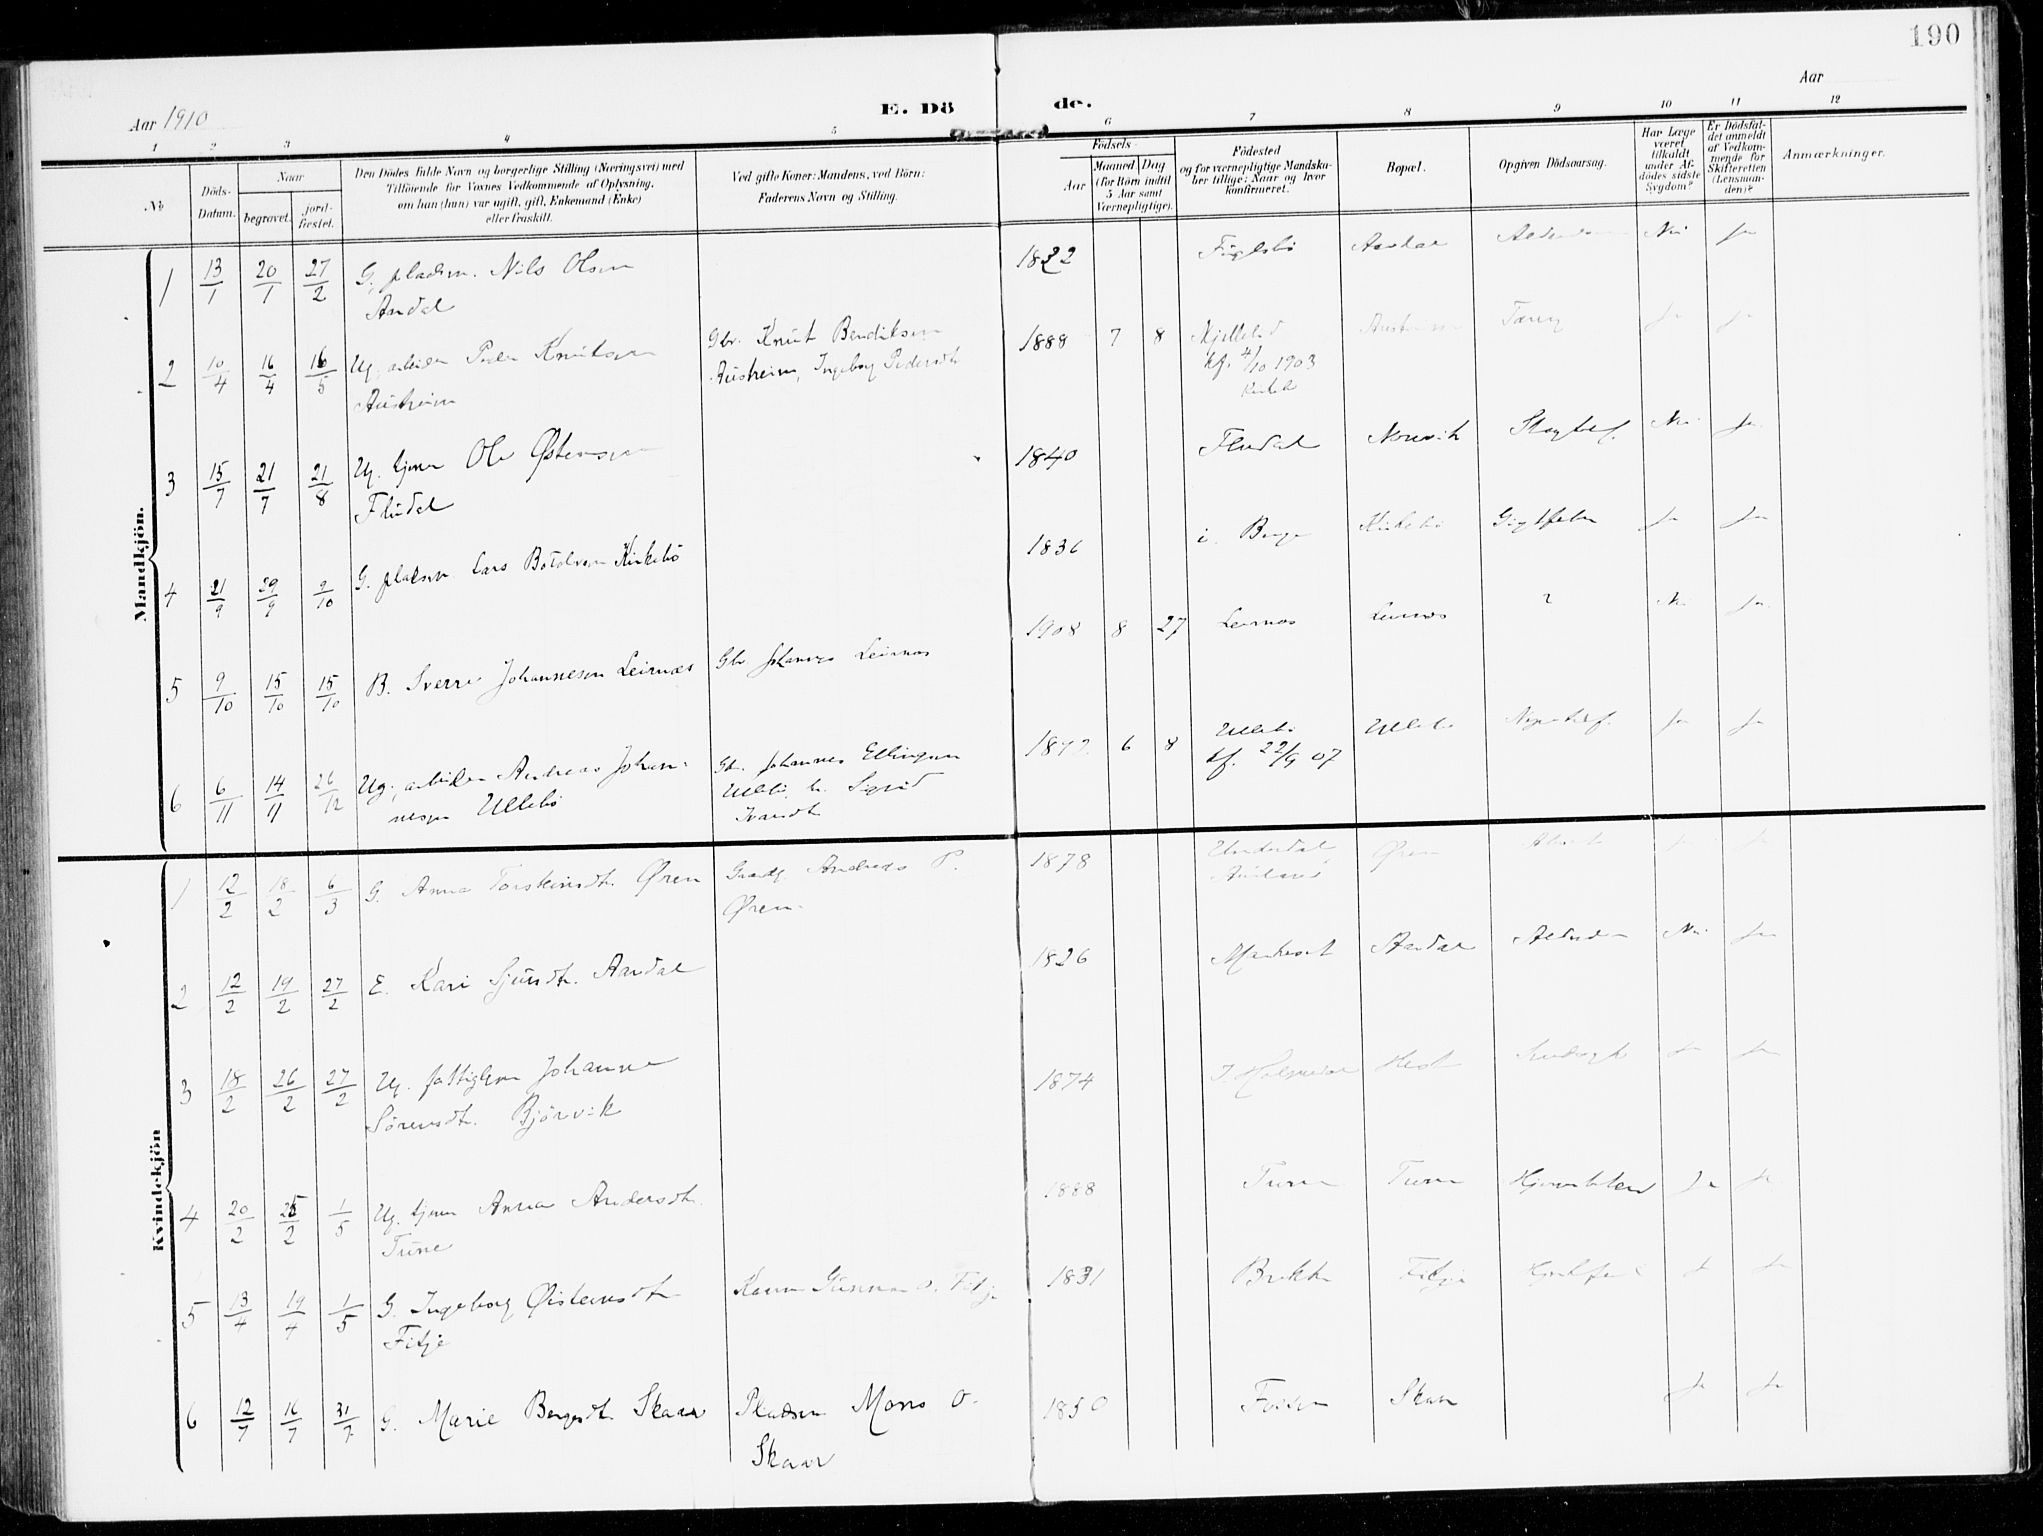 190
Aar 1910
E. Dö
de.
Aar
1 2 3 4 5 6 7 8 9 10 11 12
№
Döds-
Datum.
Naar
begravet.
jord-
fæstet.
Den Dödes fulde Navn og borgerlige Stilling (Næringsvei) med
Tilföiende for Voxnes Vedkommende af Oplysning,
om han (hun) var ugift, gift, Enkemand (Enke)
eller fraskilt.
Ved gifte Koner: Mandens, ved Börn:
Faderens Navn og Stilling.
Födsels-
Aar
Maaned Dag
(for Börn indtil
5 Aar samt
Værnepligtige).
Födested
og for værnepligtige Mandska-
ber tillige: Naar og hvor
konfirmeret.
Bopæl.
Opgiven Dödsaarsag.
Har Læge
været
tilkaldt
under Af-
dödes sidste
Sygdom?
Er Dödsfal-
det anmeldt
af Vedkom-
mende for
Skifteretten
(Lensman-
den)?
Anmærkninger.
Mandkjön.
1 13/1 20/1 27/2 G. pladsm. Nils Olsen 1822 Nei Ja
2 10/4 16/4 16/5 Ug. arbeider Peder Knutsen Gbr. Knut Bendiksen 1888 7 8 Tæring Ja Ja
Austreim Austreim, Ingeborg Pedersdt. kf. 4/10 1903
3 15/7 21/7 21/8 Ug. tjener Ole Østensen 1840 Fludal Norevik Slagtilf. Nei Ja
Fludal
4 21/9 29/9 2/10 G. pladsm. Lars Botolvsen Kirkebö 1836 Kirkebö Gigtfeber Ja Ja
5 9/10 15/10 15/10 B. Sverre Johannesen Leirnæs Gbr Johannes Leirnæs 1908 8 27 Leirnæs Leirnæs ? Nei Ja
6 6/11 14/11 26/12 Ug., arbeider Andreas Johan- Gbr. Johannes Ellingsen 6 8 Ullebö Ullebö Ja Ja
nesen Ullebö Ullebö, h. Sigrid kf. 22/9 07
Ivarsdt.
Kvindekjön
1 12/2 18/2 6/3 G. Anna Torsteinsdt. Øren Gaardbr. Andreas P. 1878 Underdal Øren Ja Ja
Øren. Aurland
2 12/2 19/2 27/2 E. Kari Sjursdt. Aardal 1826 Aardal Alderdom Nei Ja
3 18/2 26/2 27/2 Ug. fattiglem Johanne 1874 Ja Ja
Sörensdt. Bjørvik
4 20/2 25/2 1/5 Ug. tjener Anna Andersdt. 1888 Tune Tune Ja Ja
Tune
5 13/4 19/4 1/5 G. Ingeborg Øistensdt. Gunnar O. Fitje 1831 Brekke Fitje Ja Ja
Fitje
6 12/7 16/7 31/7 G. Marie Bergesdt. Skaar Pladsm Mons O. 1850 Skaar Ja Ja
Skaar